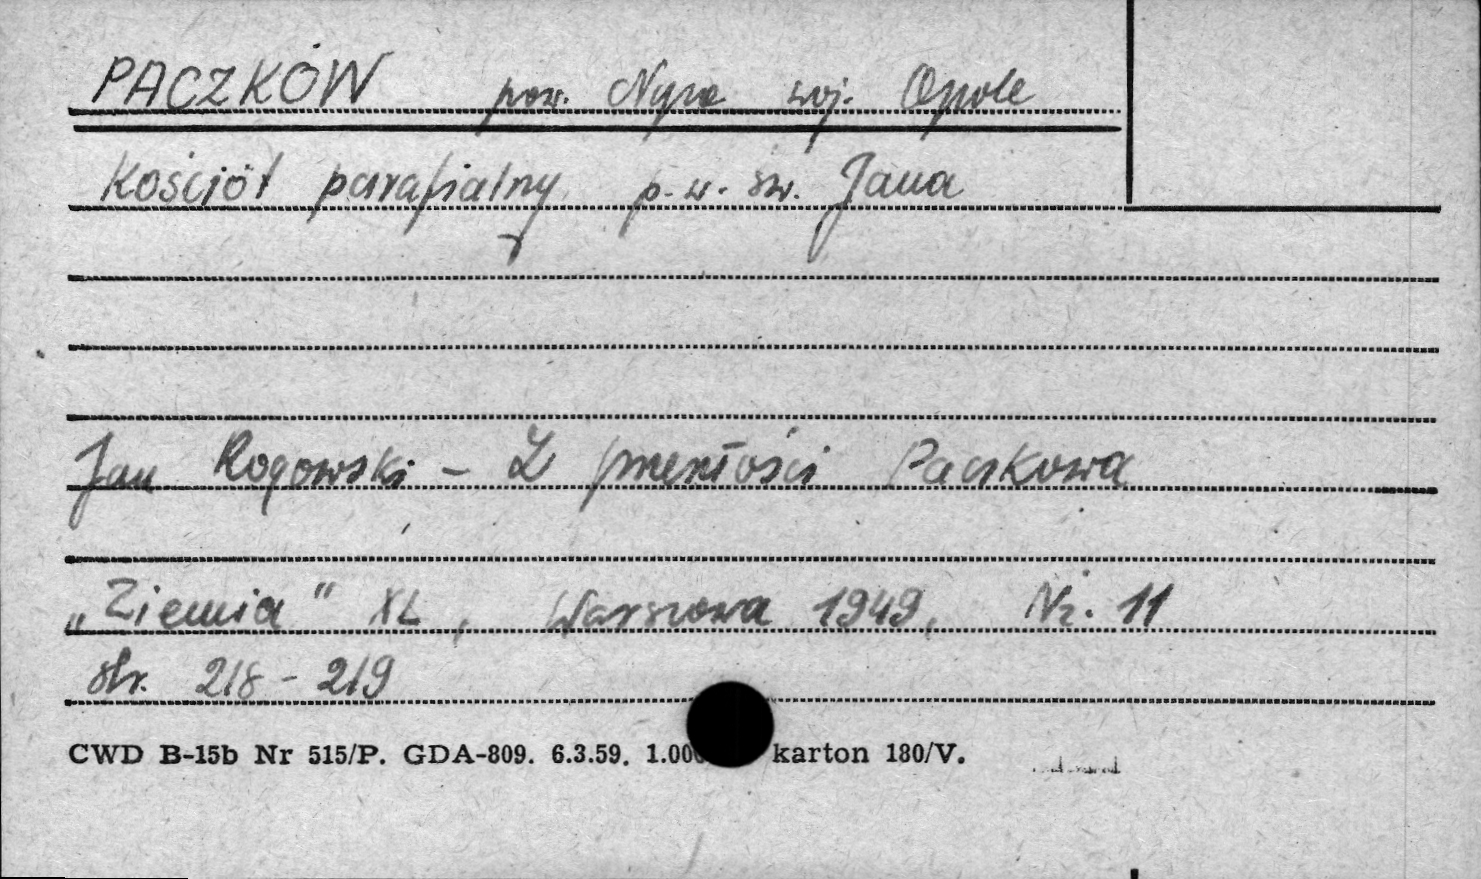 PACZKÓW pow. Nysa woj. Opole
Kościół parafialny p.w. św. Jana
Jan Rogowski - Z przeszłości Paczkowa
„Ziemia" XL, Warszawa 1949, Nr. 11
str. 218 - 219
CWD B-15b Nr 515/P. GDA-809. 6.3.59. karton 180/V.